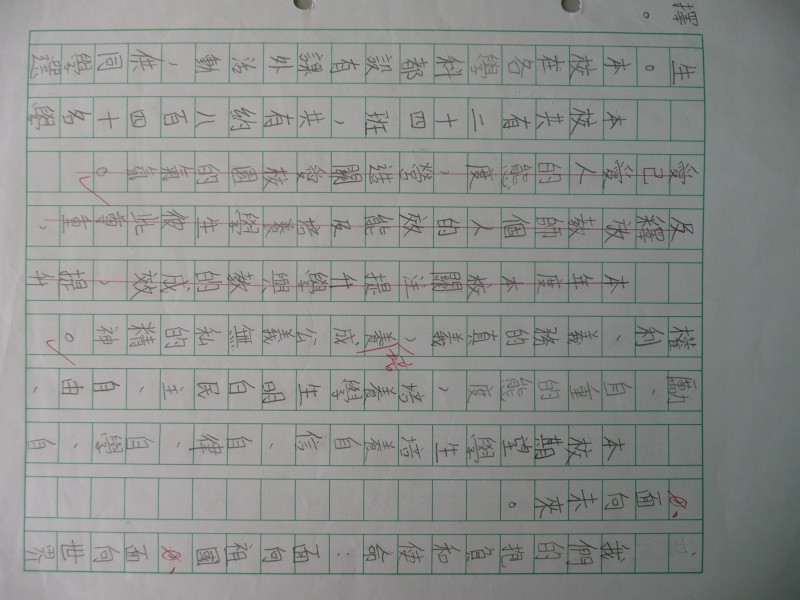 我們的抱負和使命：面向祖國、面向世界
、面向未來。
本校期望學生培養自信、自律、自學、自
勵、自重的態度，培養學生明白民主、自由、
權利、義務的真義，養成公義無私的精神。
本年度本校關注提升學與教的成效，提升
及釋放教師個人的效能及培養學生彼此尊重、
愛己愛人的態度，營造關愛校園的氣氛。
本校共有二十四班，共有約八百四十名學
生。本校在各學科都設有課外活動，供同學選
擇。